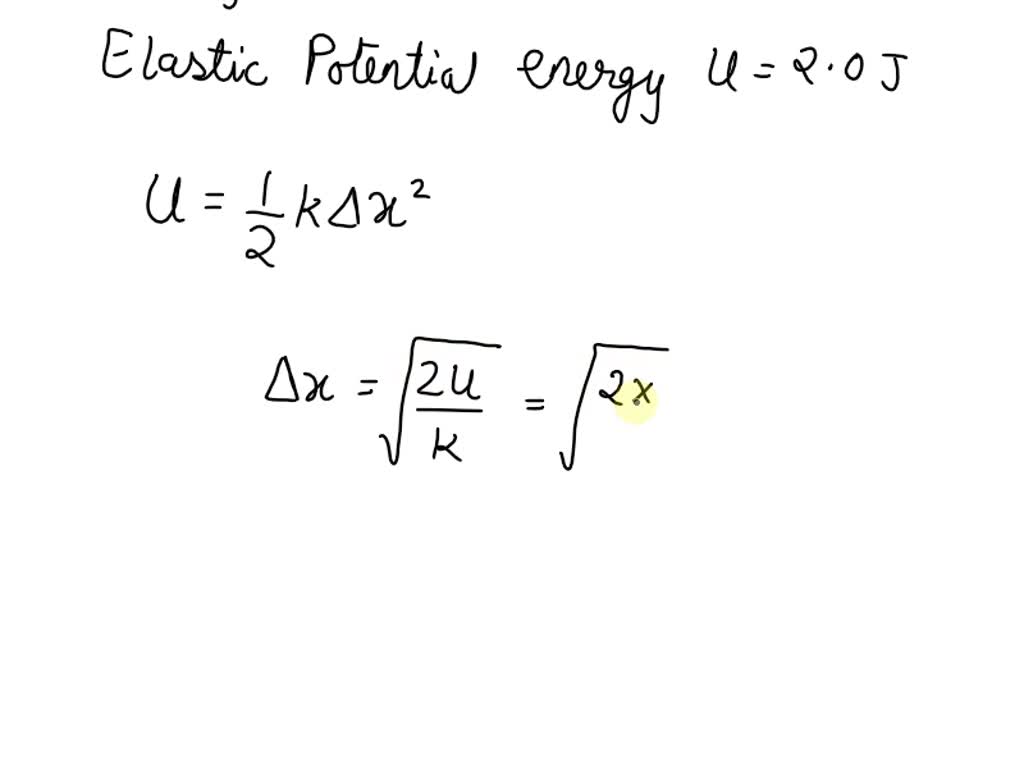 Elastic Potential energy U = 2.0 J
U = 1/2 k Δx²
Δx = √(2U/k) = √(2x